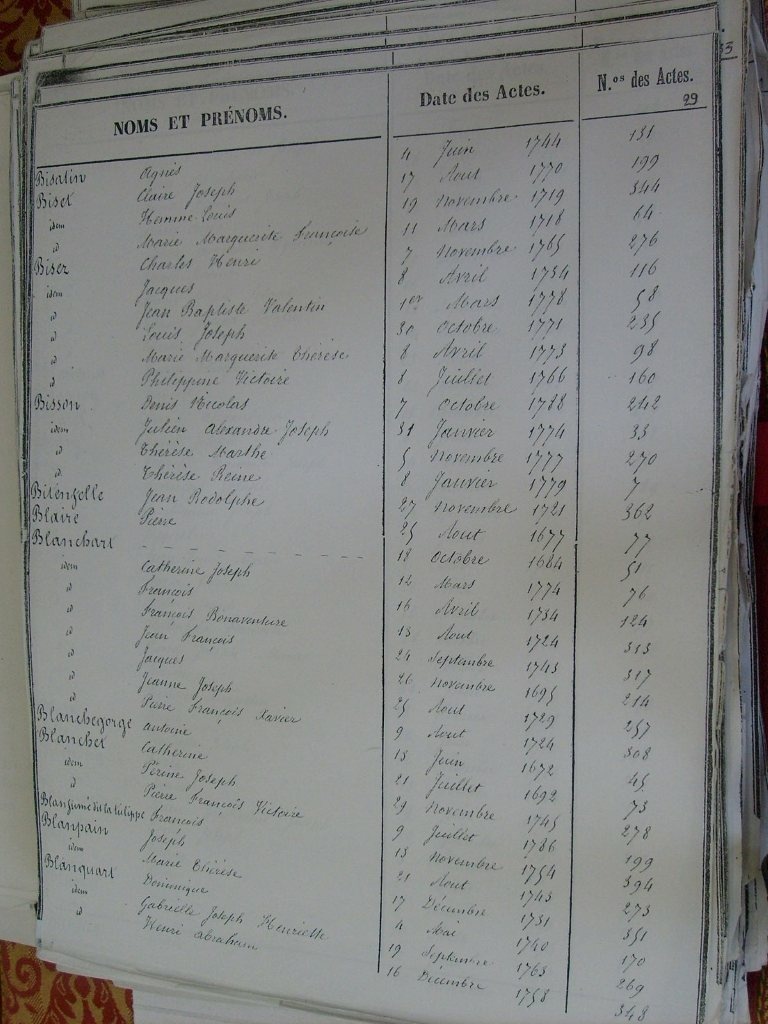 33
NOMS ET PRÉNOMS. Date des Actes. N.os des Actes.
29
Bisatin Agnès 4 Juin 1744 131
Biset Claire Joseph 17 Aout 1770 199
idem Louis 19 Novembre 1719 344
id Marie Marguerite Françoise 11 Mars 1718 64
Bisez Charles Henri 7 Novembre 1765 276
idem Jacques 8 Avril 1734 116
id Jean Baptiste Valentin 1er Mars 1778 58
id Louis Joseph 30 Octobre 1771 235
id Marie Marguerite Thérèse 8 Avril 1773 98
id Philippine Victoire 8 Juillet 1766 160
Bisson Denis Nicolas 7 Octobre 1788 242
idem Julien Alexandre Joseph 31 Janvier 1774 33
id Thérèse Marthe 5 Novembre 1777 270
id Thérèse Reine 8 Janvier 1779 7
Bitenzelle Jean Rodolphe 27 Novembre 1721 362
Blaire Pierre 25 Aout 1677 77
Blanchart - - - - - - - - 18 Octobre 1684 51
idem Catherine Joseph 12 Mars 1774 76
id François 16 Avril 1734 124
id François Bonaventure 13 Aout 1724 313
id Jean François 24 Septembre 1743 317
id Jacques 26 Novembre 1695 214
id Jeanne Joseph 25 Aout 1729 257
id Pierre François Xavier 9 Aout 1724 308
Blanchegorge antoine 13 Juin 1672 45
Blanchet Catherine 21 Juillet 1692 73
idem Périne Joseph 29 Novembre 1745 278
id Pierre François Victoire 9 Juillet 1786 199
Blangumé dit la tulippe François 13 Novembre 1754 394
Blanpain Joseph 21 Aout 1743 273
idem Marie Thérèse 17 Décembre 1731 351
Blanquart Dominique 4 Mai 1740 170
idem Gabrielle Joseph Henriette 19 Septembre 1763 269
id Henri Abraham 16 Décembre 1758 343